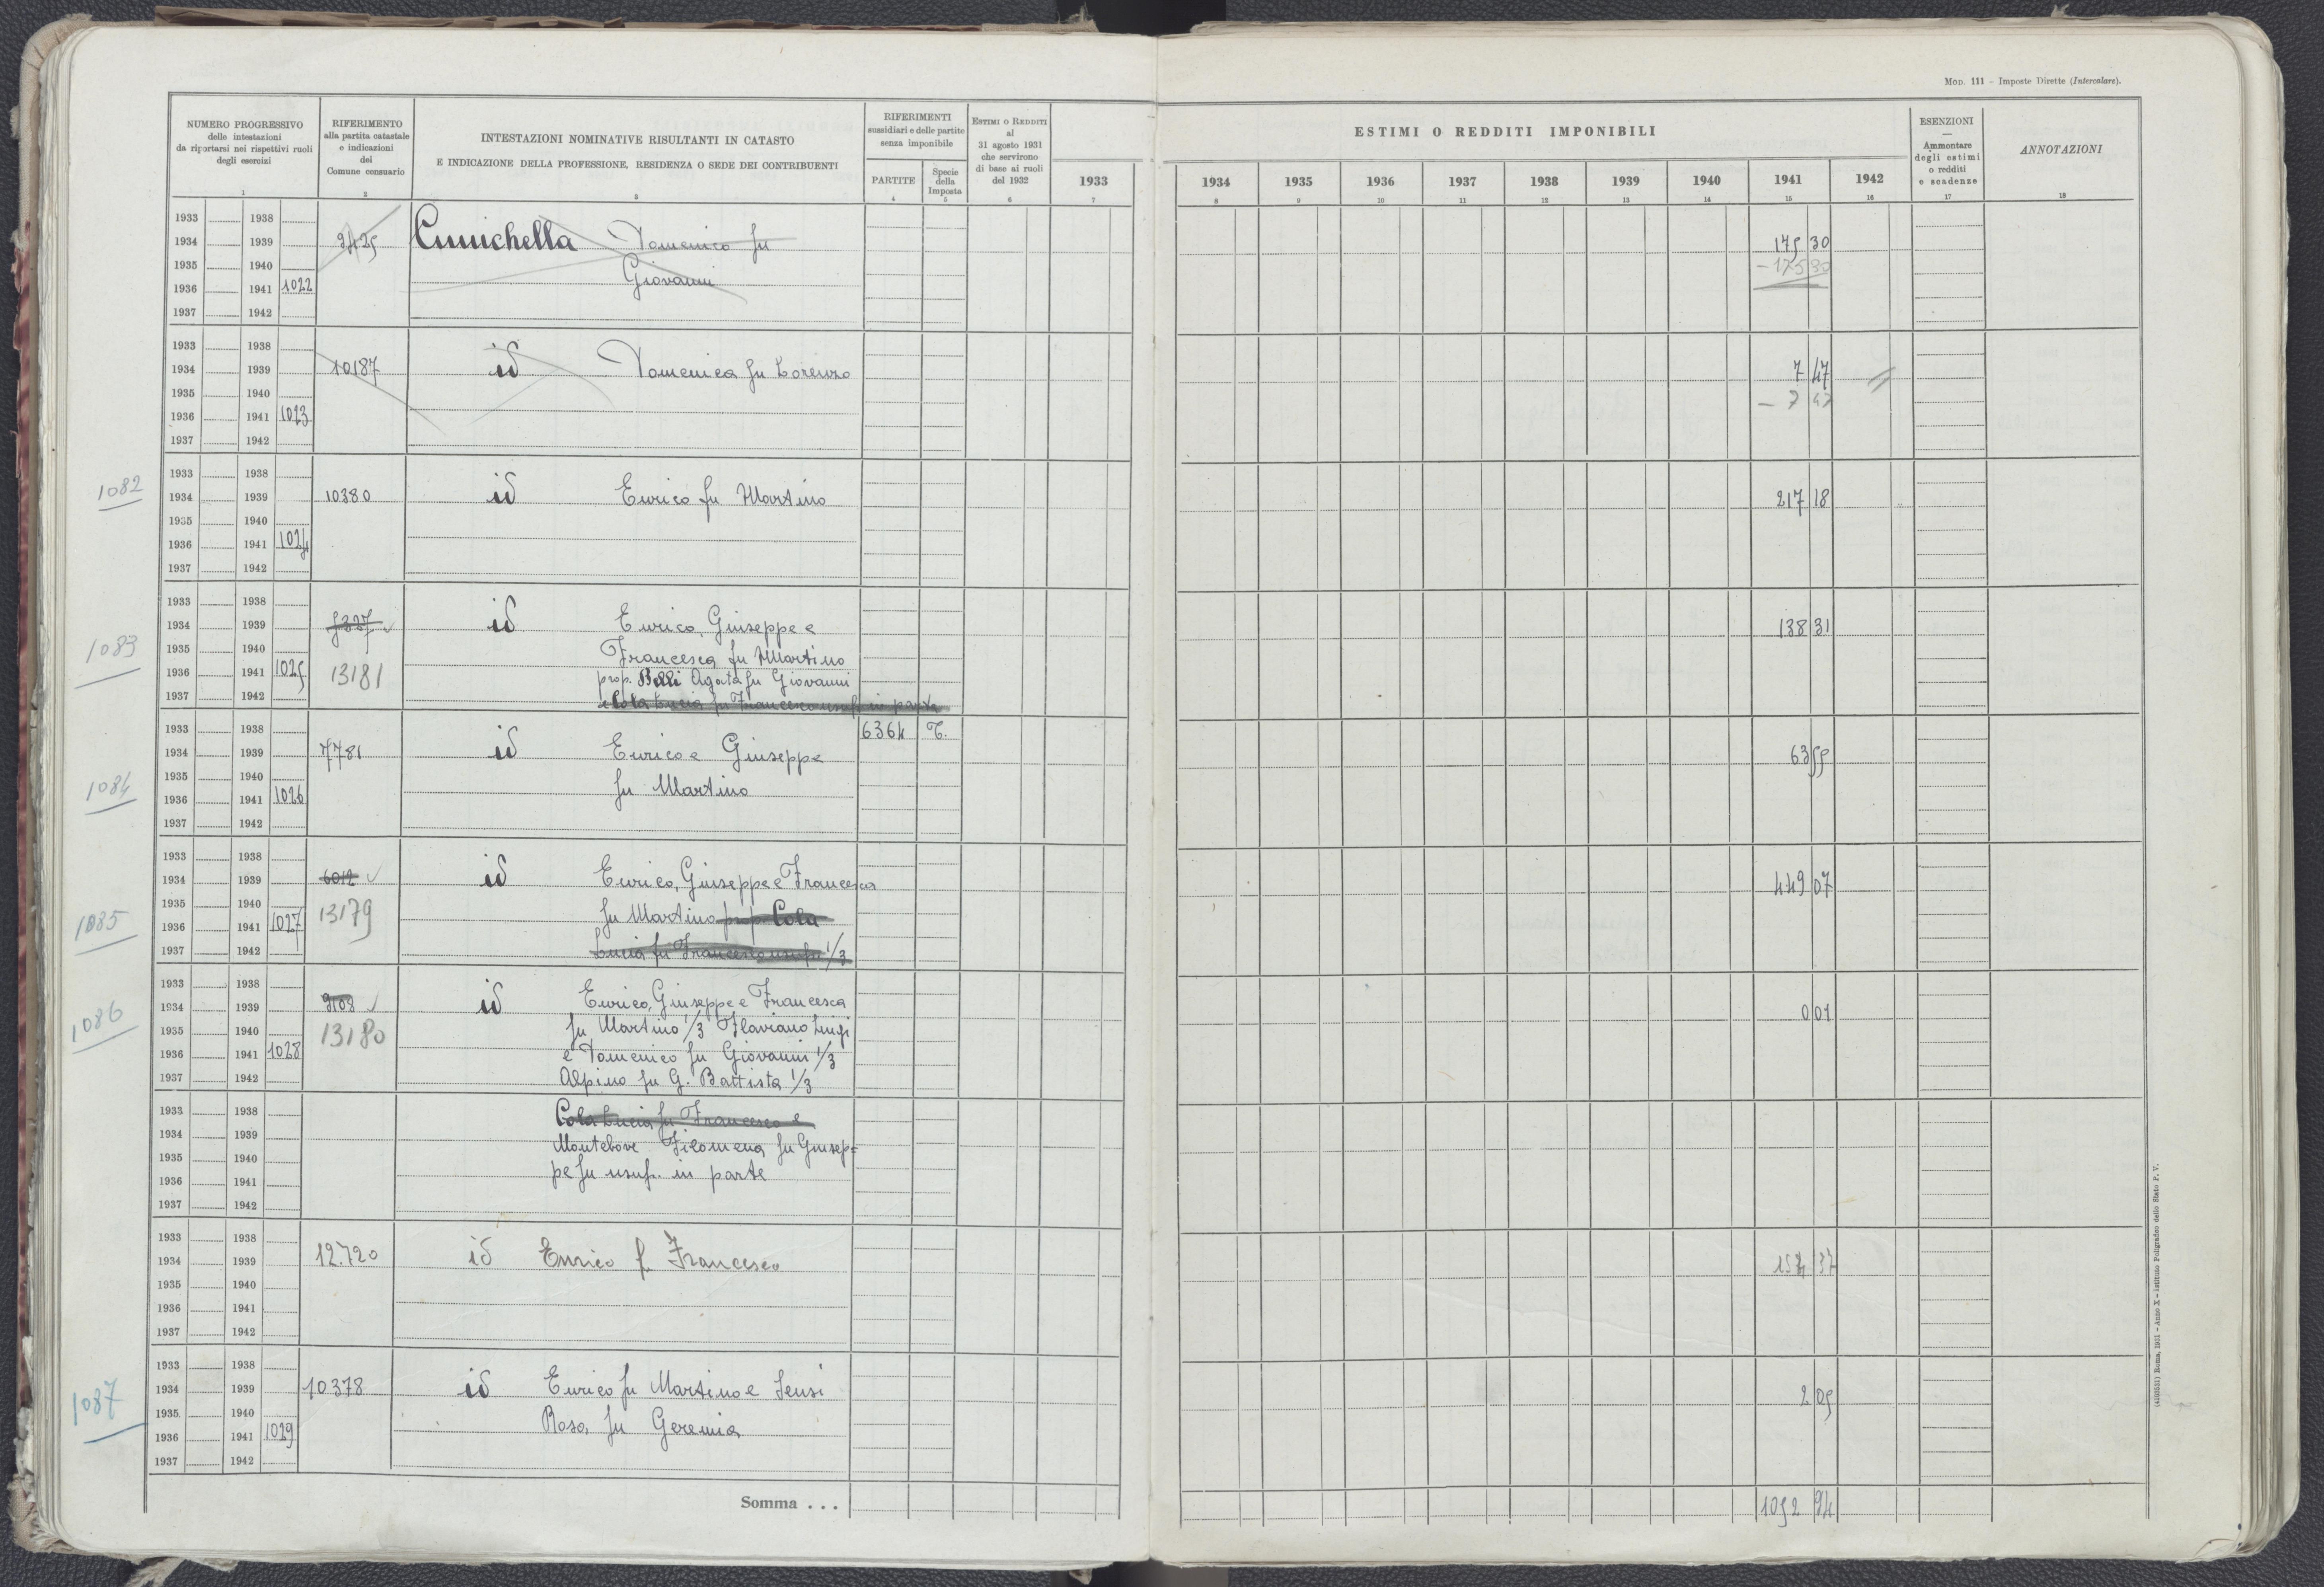 Mod. 111 - Imposte Dirette (Intercalare).
NUMERO PROGRESSIVO
delle intestazioni
da riportarsi nei rispettivi ruoli
degli esercizi
1
RIFERIMENTO
alla partita catastale
e indicazioni
del
Comune censuario
2
INTESTAZIONI NOMINATIVE RISULTANTI IN CATASTO
E INDICAZIONE DELLA PROFESSIONE, RESIDENZA O SEDE DEI CONTRIBUENTI
3
RIFERIMENTI
sussidiari e delle partite
senza imponibile
PARTITE
4
Specie
della
Imposta
5
ESTIMI O REDDITI
al
31 agosto 1931
che servirono
di base ai ruoli
del 1932
6
1933
7
ESTIMI O REDDITI IMPONIBILI
1934 1935 1936 1937 1938 1939 1940 1941 1942
8 9 10 11 12 13 14 15 16
ESENZIONI
Ammontare
degli estimi
o redditi
e scadenze
17
ANNOTAZIONI
18
1933 1938
1934 1939 9425 Cumichella Domenico fu 175 30
1935 1940 Giovanni - 175 30
1936 1941 1022
1937 1942
1933 1938
1934 1939 10187 id Domenica fu Lorenzo 7 47
1935 1940 - 7 47
1936 1941 1023
1937 1942
1933 1938
1082 1934 1939 10380 id Enrico fu Martino 217 18
1935 1940
1936 1941 1024
1937 1942
1933 1938
1934 1939 id Enrico, Giuseppe e 138 31
1083 1935 1940 Francesca fu Martino
1936 1941 1025 13181 prop. Belli Agata fu Giovanni
1937 1942 e Cola Lucia fu Francesco usuf. in parte
1933 1938 6364 T.
1934 1939 7781 id Enrico e Giuseppe 63 55
1084 1935 1940 fu Martino
1936 1941 1026
1937 1942
1933 1938
1934 1939 6012 id Enrico, Giuseppe e Francesca 449 07
1085 1935 1940 13179 fu Martino prop. Cola
1936 1941 1027
1937 1942 Lucia fu Francesco usuf. 1/3
1933 1938
1086 1934 1939 9108 id Enrico, Giuseppe e Francesca 0 01
1935 1940 13180 fu Martino 1/3 Flaviano Luigi
1936 1941 1028 e Domenico fu Giovanni 1/3
1937 1942 Alpino fu G. Battista 1/3
1933 1938 Cola Lucia fu Francesco e
1934 1939 Montebove Filomena fu Giusep=
1935 1940 pe fu usuf. in parte
1936 1941
1937 1942
1933 1938
1934 1939 12.720 id Enrico f. Francesco 154 37
1935 1940
1936 1941
1937 1942
1933 1938
1087 1934 1939 10378 id Enrico fu Martino e Sensi 2 05
1935 1940 Rosa fu Geremia
1936 1941 1029
1937 1942
Somma . . . 1052 94
(4103551) Roma, 1931 - Anno X - Istituto Poligrafico dello Stato P. V.